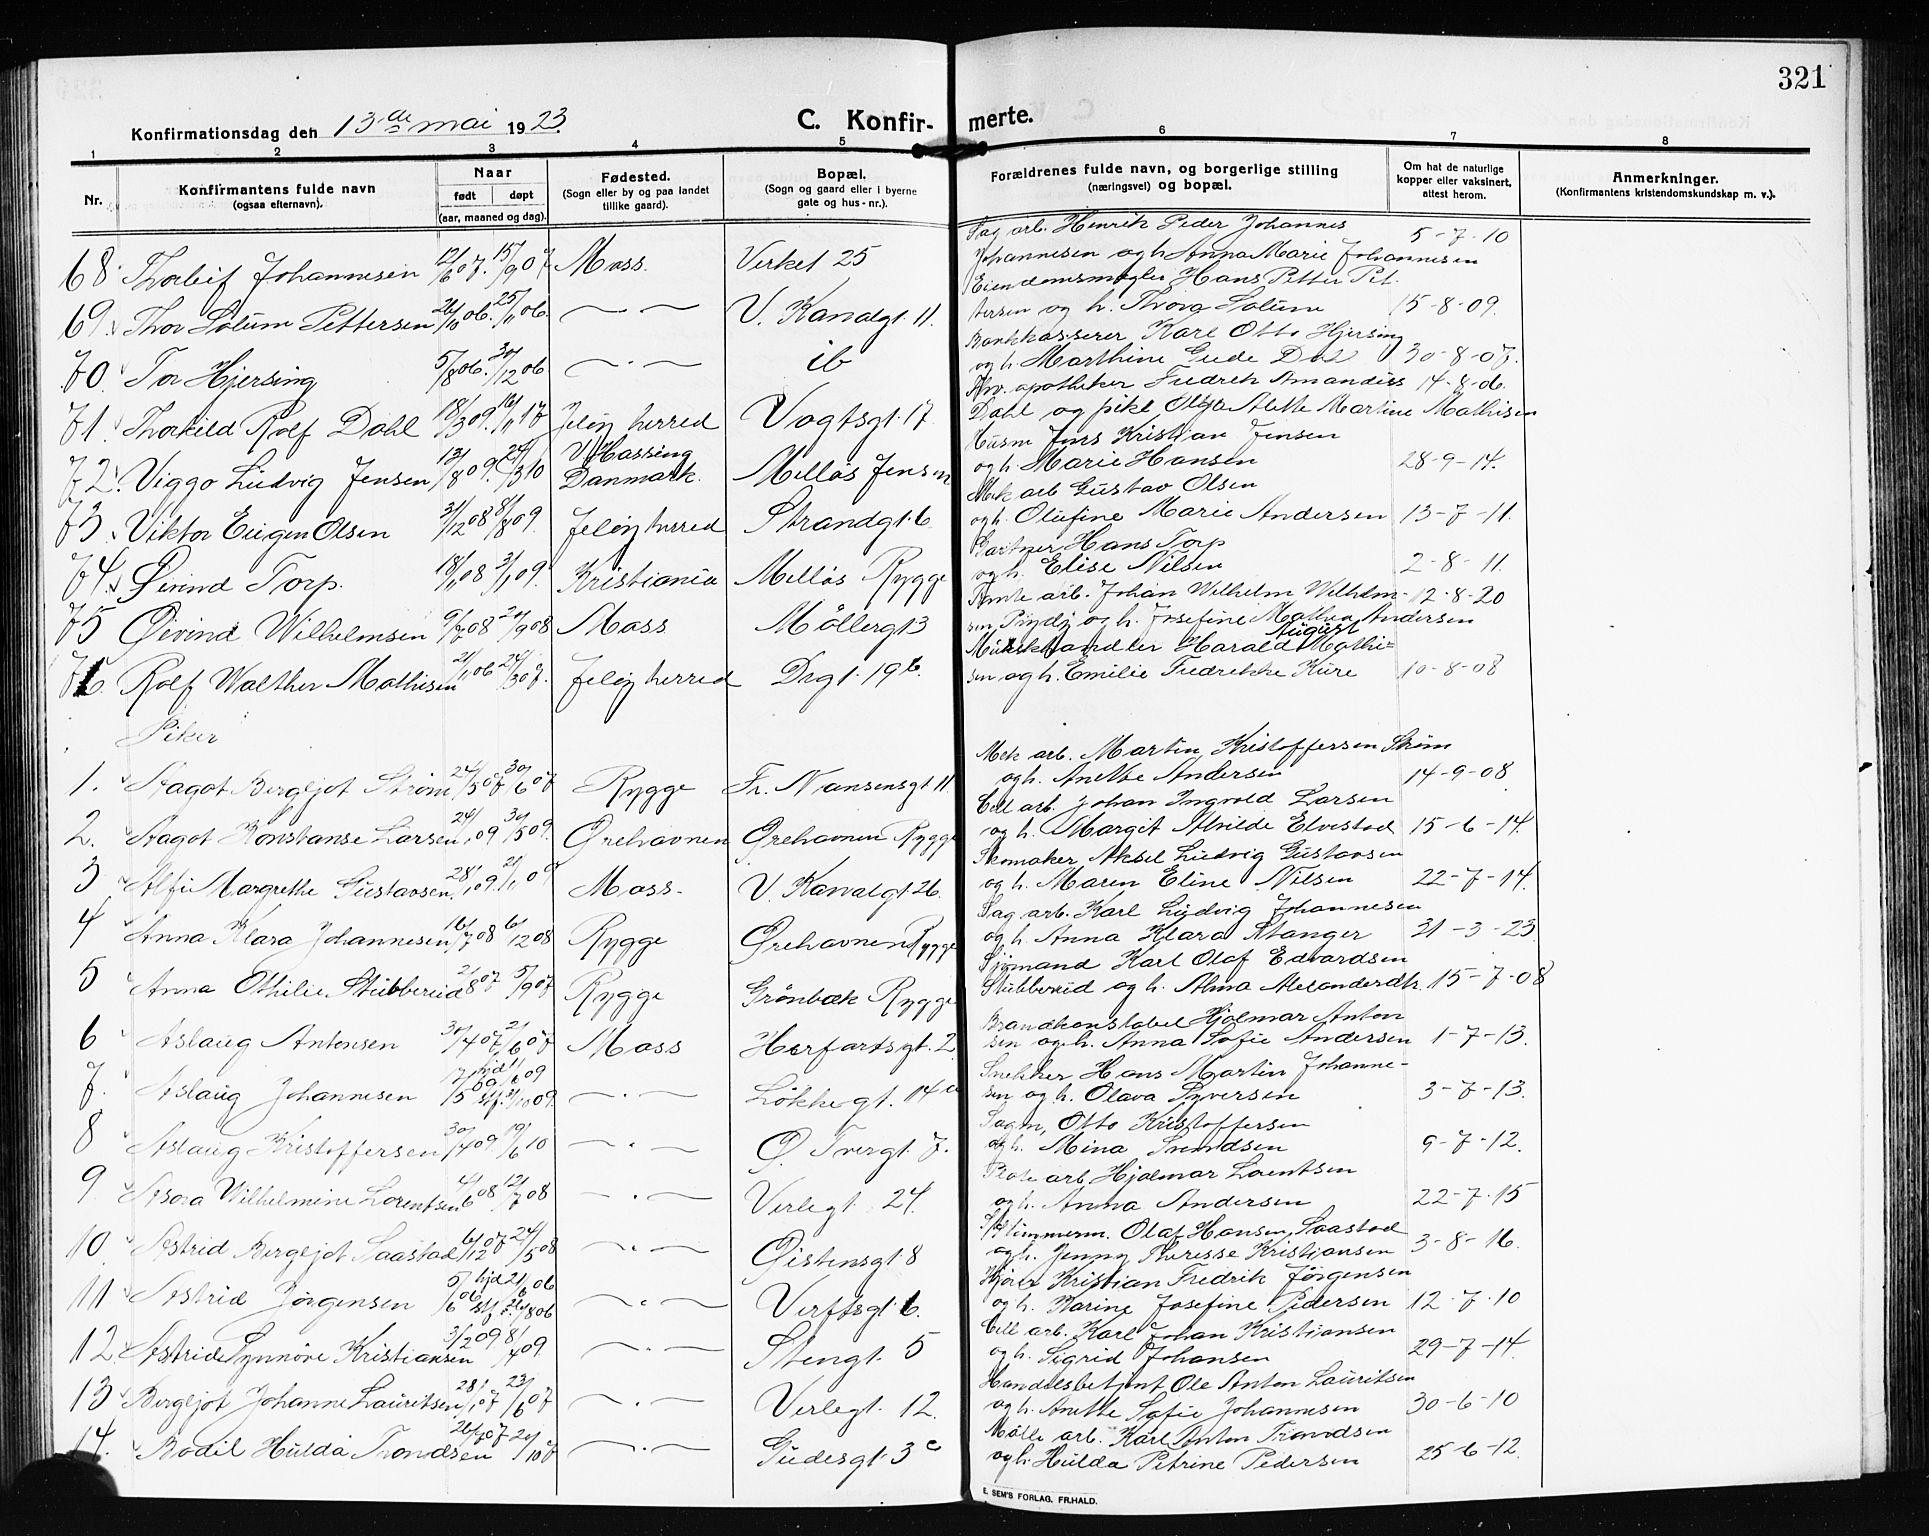 321
Konfirmationsdag den 13de mai 1923. C. Konfir- merte.
1 2 3 4 5 6 7 8
Nr. Konfirmantens fulde navn (ogsaa efternavn). Naar født døpt (aar, maaned og dag). Fødested. (Sogn eller by og paa landet tillike gaard). Bopæl. (Sogn og gaard eller i byerne gate og hus-nr.). Forældrenes fulde navn, og borgerlige stilling (næringsvei) og bopæl. Om hat de naturlige kopper eller vaksinert, attest herom. Anmerkninger. (Konfirmantens kristendomskundskap m. v.).
68 Thorleif Johannesen 12/6 07. 15/9 07 Moss. Verket 25 Sag arb. Henrik Peder Johannes 5-7-10
Johannesen og h. Anna Marie Johannesen
69 Thor Solum Pettersen 26/10 06. 25/11 06. —·— V. Kanalgt. 11. Eiendomsmægler Hans Petter Pet-
tersen og h. Thora Solum 15-8-09.
70. Tor Hjersing 5/8 06. 30/12 06 —·— ib Bankkasserer Karl Otto Hjersing
og h. Marthine Gude Dal 30-8-07.
71. Thorkild Rolf Dahl 18/3 09. 16/11 17 Jeløy herred Vogtsgt. 17 apotheker Fredrik Amandus 14-8-06.
Dahl og pike Olga Alette Martine Mathisen
72. Viggo Ludvig Jensen 13/8 09. 24/3 10 V. Hassing Danmark. Melløs Jensen Husm Jens Kristian Jensen
og h. Marie Hansen 28-9-14.
73. Viktor Eugen Olsen 31/12 08 8/8 09. Jeløy herred Strandgt. 6 Mek arb Gustav Olsen
og h. Olufine Marie Andersen 13-7-11.
74. Øivind Torp. 18/11 08 3/1 09. Kristiania Melløs Rygge Gartner Hans Torp
og h. Elise Nilsen 2-8-11.
75 Øivind Wilhelmsen 9/7 08 20/9 08 Moss Møllergt 3 Tomte arb. Johan Wilhelm Wilhelm- 12-8-20
sen og h. Josefine Mathea Andersen
76. Rolf Walther Mathisen 21/11 06 24/3 07. Jeløy herred Dr gt. 19 b. Musikhandler Harald August Mathi-
sen og h. Emilie Fredrikke Kure 10-8-08
Piker
1. Aagot Bergljot Strøm 24/5 07 30/6 07 Rygge Fr. Nansensgt 11. Mek arb. Martin Kristoffersen Strøm
og h. Anette Andersen 14-9-08
2. Aagot Konstanse Larsen 24/1 09 30/5 09. Ørehavnen Ørehavnen Rygge Cell arb. Johan Ingvald Larsen
og h. Margit Alvilde Elvestad 15-6-14.
3 Alfii Margrethe Gustavsen 28/1 09. 21/1 09 Moss. V. Kanalgt 26. Skomaker Aksel Ludvig Gustavsen
og h. Maren Eline Nilsen 22-7-14.
4 Anna Klara Johannesen 16/7 08 6/12 08 Rygge Ørehavnen Rygge Sag arb. Karl Ludvig Johannesen
og h. Anna Klara Stanger 31-3-23.
5 Anna Othilie Stubberud 21/8 07 5/9 07 Rygge Grønbæk Rygge Sjømand Karl Olaf Edvardsen
Stubberud og h. Alma Alexandersdtr. 15-7-08
6 Aslaug Antonsen 30/4 07 2/6 07 Moss Herfartsgt. 2. Brandkonstabel Hjalmar Anton
sen og h. Anna Sofie Andersen 1-7-13.
7. Aslaug Johannesen 17/5 09 hjd 1/6 09 stf. 31/10 09. —·— Løkkegt. 14 a Snekker Hans Martin Johanne-
sen og h. Olava Syversen 3-7-13.
8 Aslaug Kristoffersen 30/4 09. 19/6 10 —·— Ø. Tvergt. 7. Sagm, Otto Kristoffersen
og h. Mina Svendsen 9-7-12.
9 Asora Wilhelmine Lorentsen 4/6 08 12/7 08 —·— Verlegt. 24. arb Hjalmar Lorentsen
og h. Anna Andersen 22-7-15
10. Astrid Bergljot Saastad 6/12 07 24/5 08 —·— Øistensgt 8 timmerm. Olaf Hansen Saastad
og h. Jenny Theresse Kristiansen 3-8-16.
11 Astrid Jørgensen 5/6 06 hjd 21/6 06 stf. /8 06 —·— Verftsgt. 6. Kjører Kristian Fredrik Jørgensen
og h. Karine Josefine Pedersen 12-7-10
12. Astride Synnøve Kristiansen 3/2 09 8/4 09. —·— Stengt. 5 Cell arb. Karl Johan Kristiansen
og h. Sigrid Johansen 29-7-14.
13 Bergljot Johanne Lauritsen 28/1 07 23/6 07 —·— Verlegt. 12. Handelsbetjent Ole Anton Lauritsen
og h. Anette Sofie Johannesen 30-6-10
14. Bodil Hulda Trondsen 26/7 07 20/10 07 —·— Gudesgt. 3 c Mølle arb. Karl Anton Trondsen
og h. Hulda Petrine Pedersen 25-6-12.
E. SEM'S FORLAG, FR.HALD.